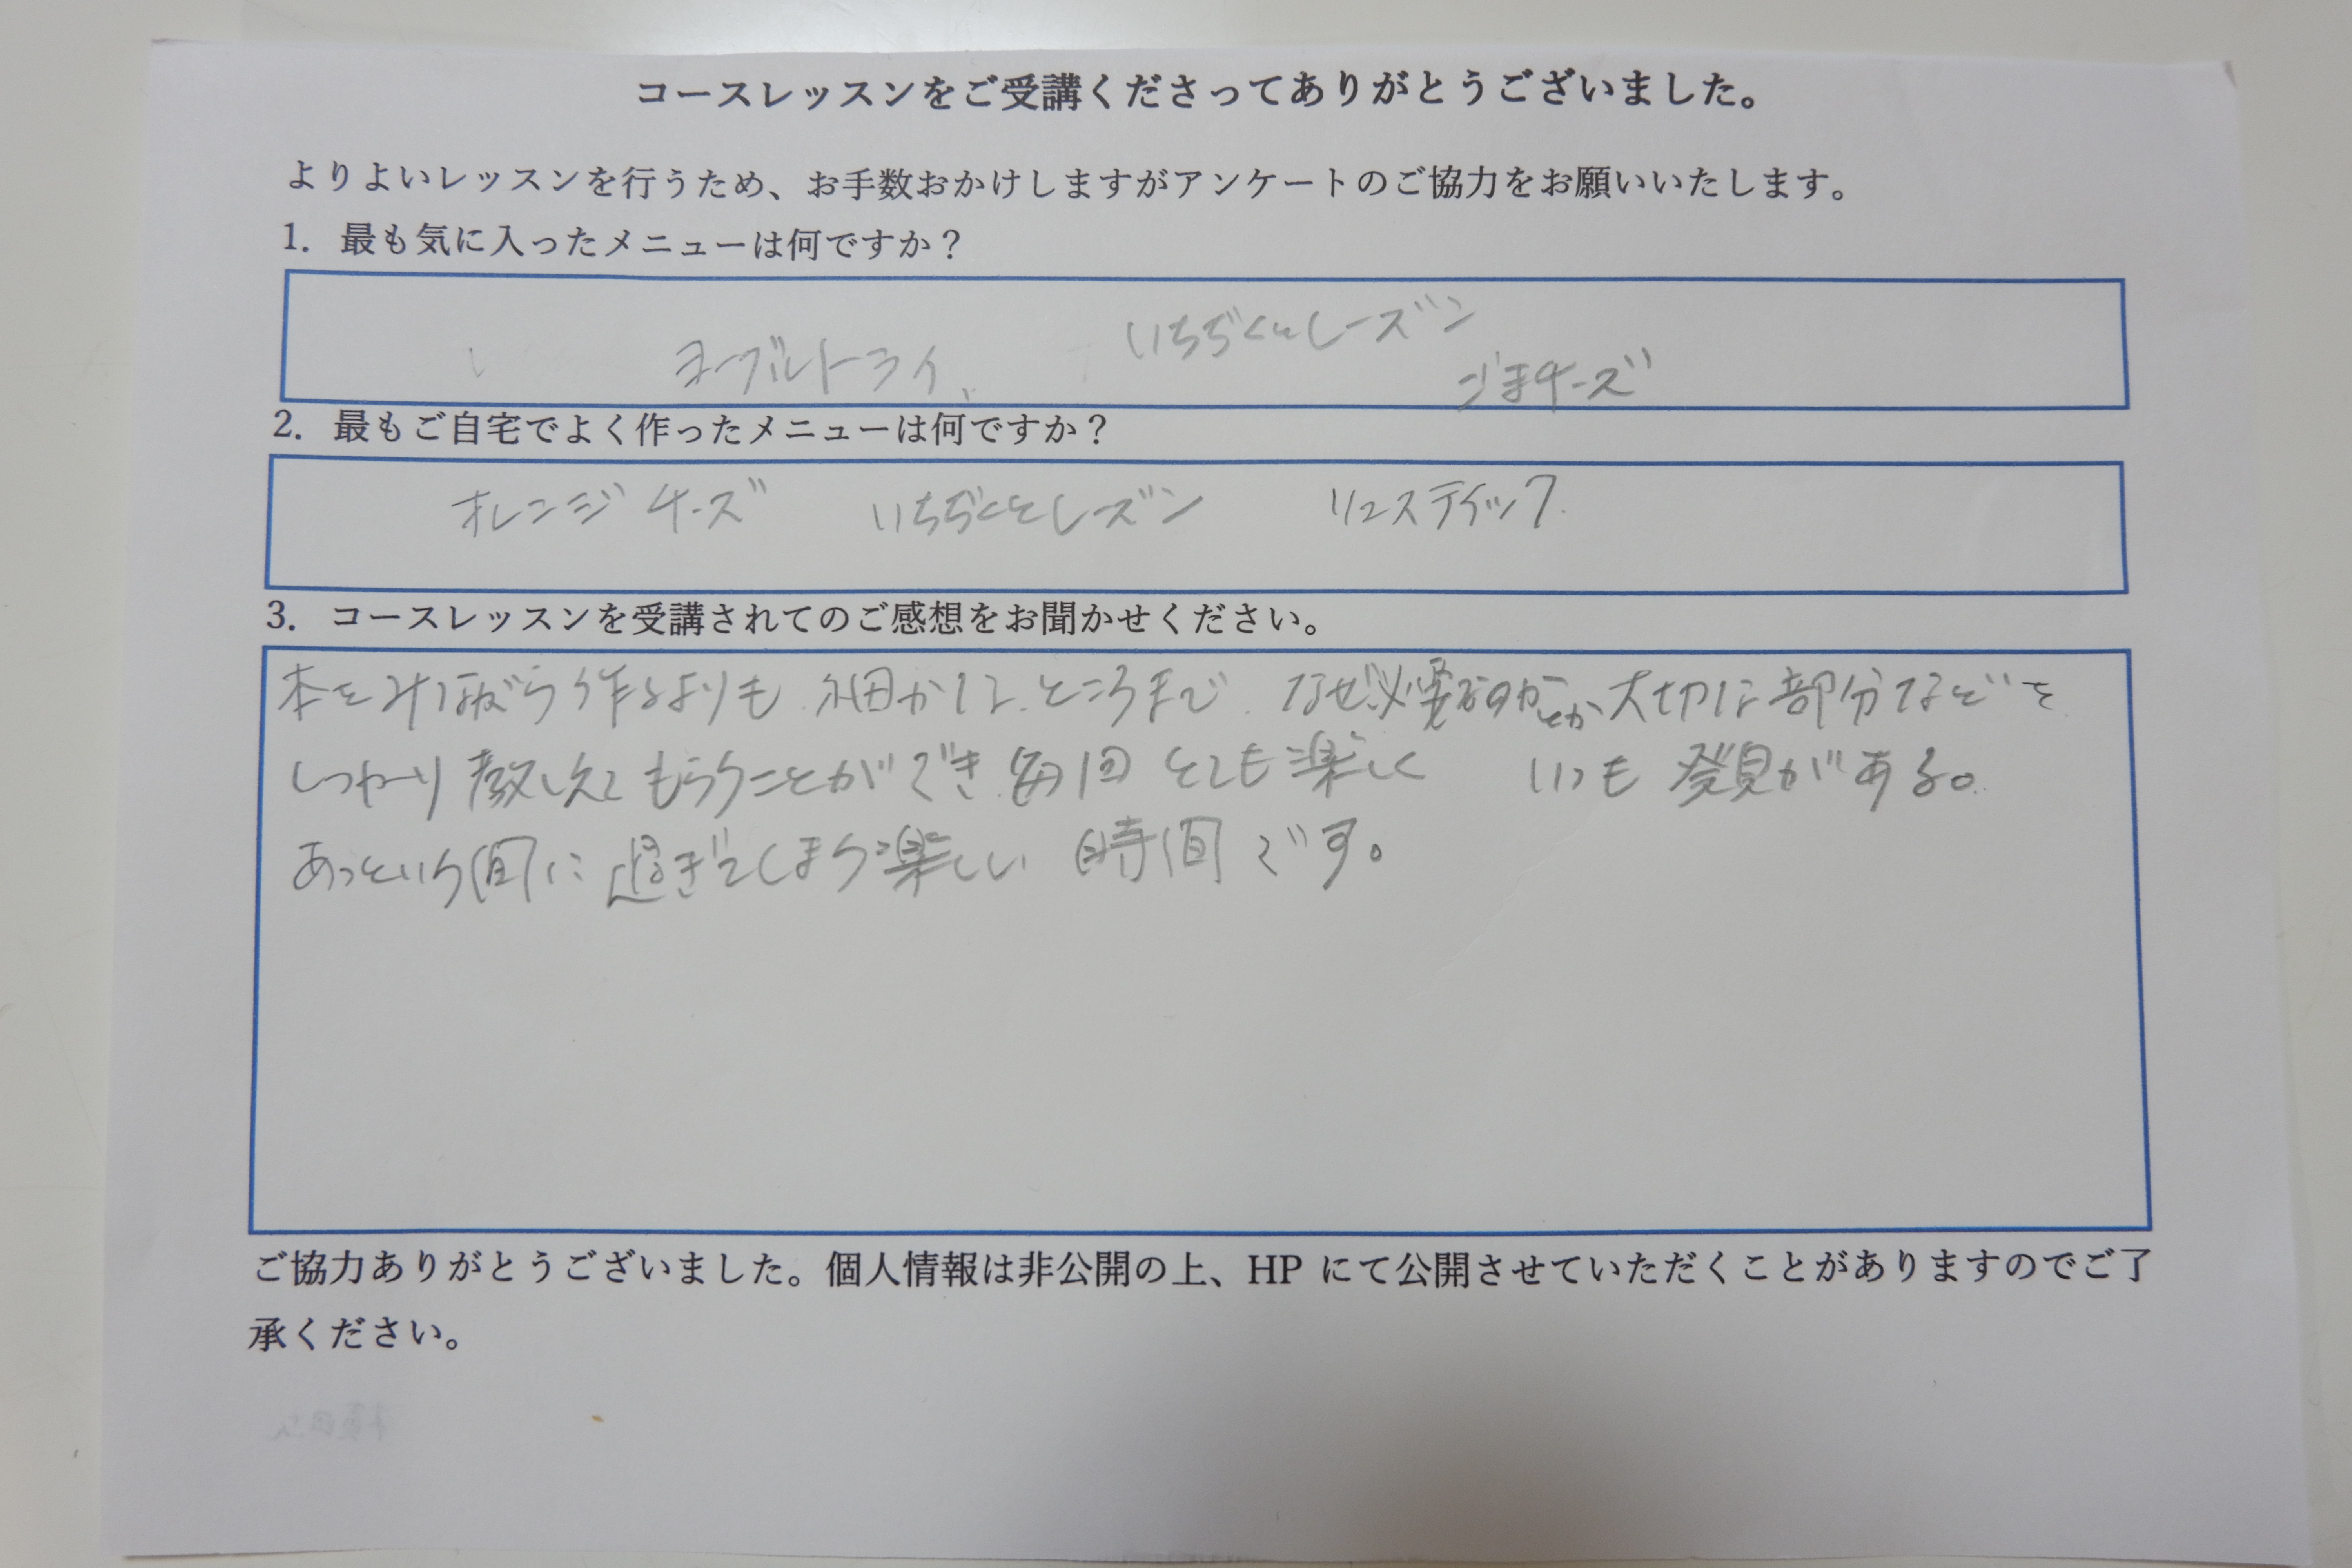 コースレッスンをご受講くださってありがとうございました。
よりよいレッスンを行うため、お手数おかけしますがアンケートのご協力をお願いいたします。
1. 最も気に入ったメニューは何ですか？
いちぢくとレーズン
ヨーグルトライ、
ごまチーズ
2. 最もご自宅でよく作ったメニューは何ですか？
オレンジチーズ いちぢくとレーズン リュスティック.
3. コースレッスンを受講されてのご感想をお聞かせください。
本をみながら作るよりも 細かいところまで なぜ必要なのかとか 大切な部分などを
しっかり教えてもらうことができ 毎回 とても楽しく いつも 発見がある。
あっという間に過ぎてしまう楽しい 時間です。
ご協力ありがとうございました。個人情報は非公開の上、HP にて公開させていただくことがありますのでご了
承ください。